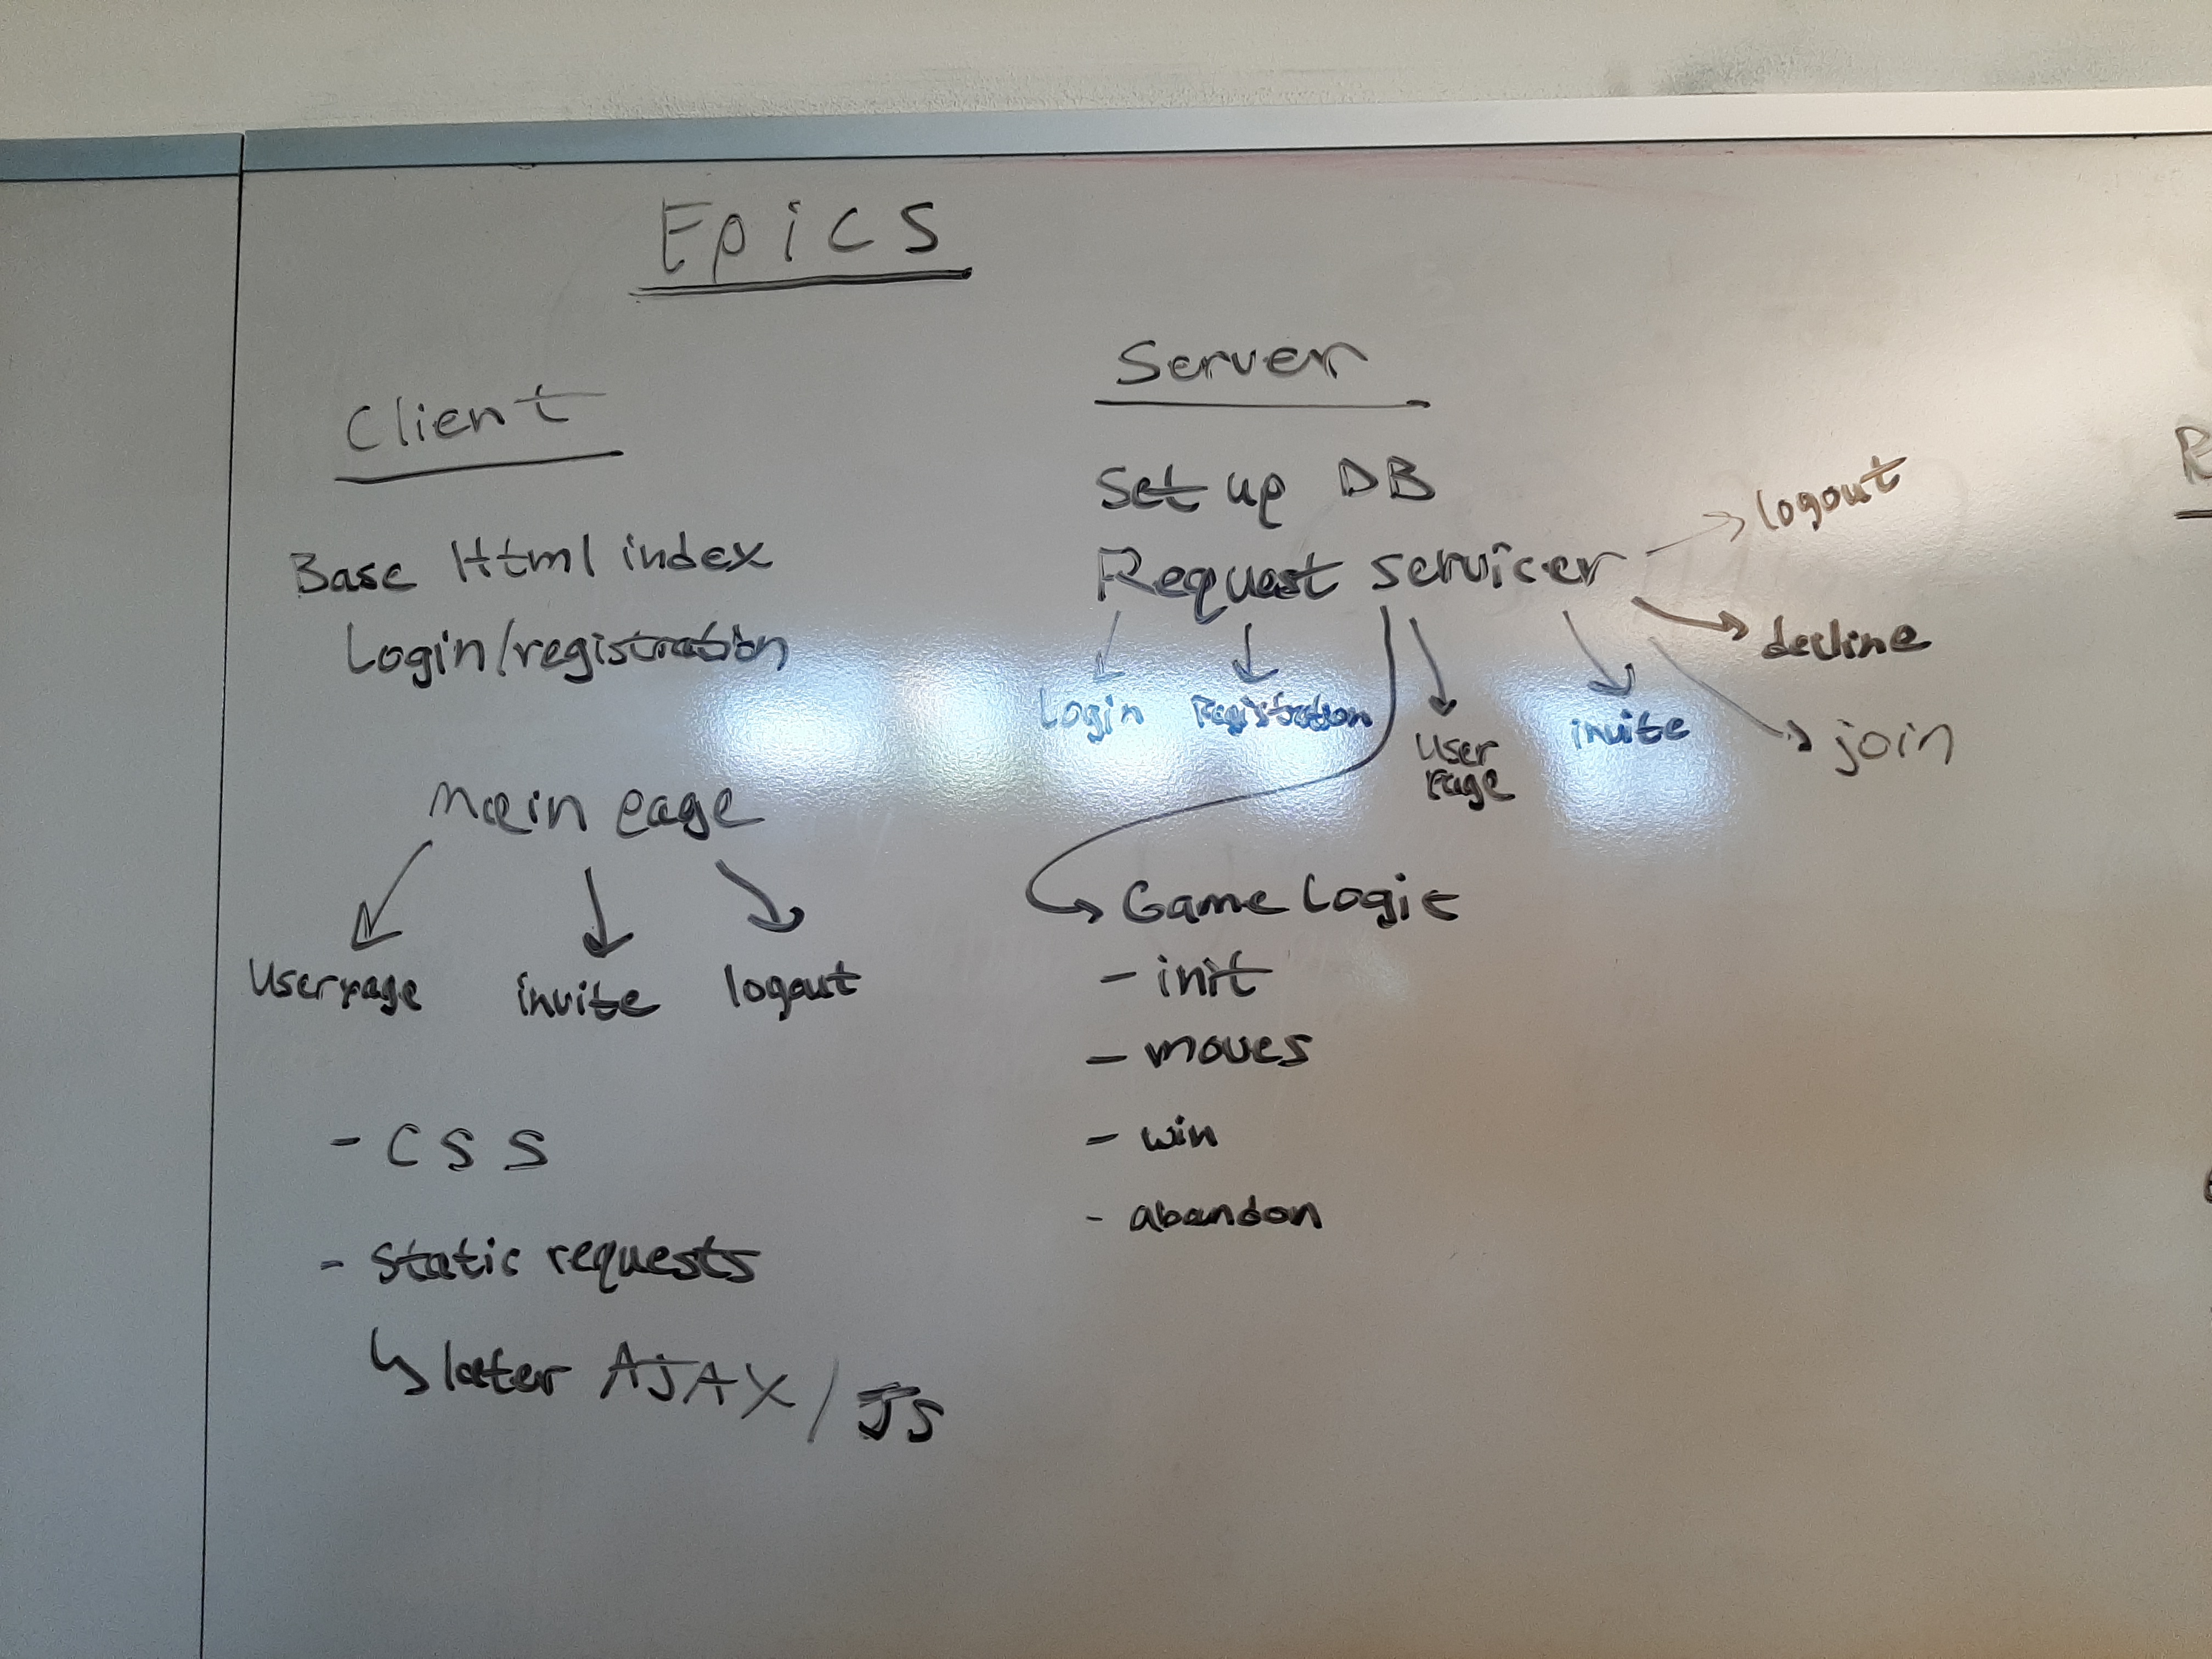 Epics
Client
Base Html index
Login/registration
main page
Userpage invite logout
- CSS
- Static requests
↳ later AJAX/JS
Server
Set up DB
Request servicer
logout
decline
join
Login Registration User Page invite
Game Logic
- init
- moves
- win
- abandon
R